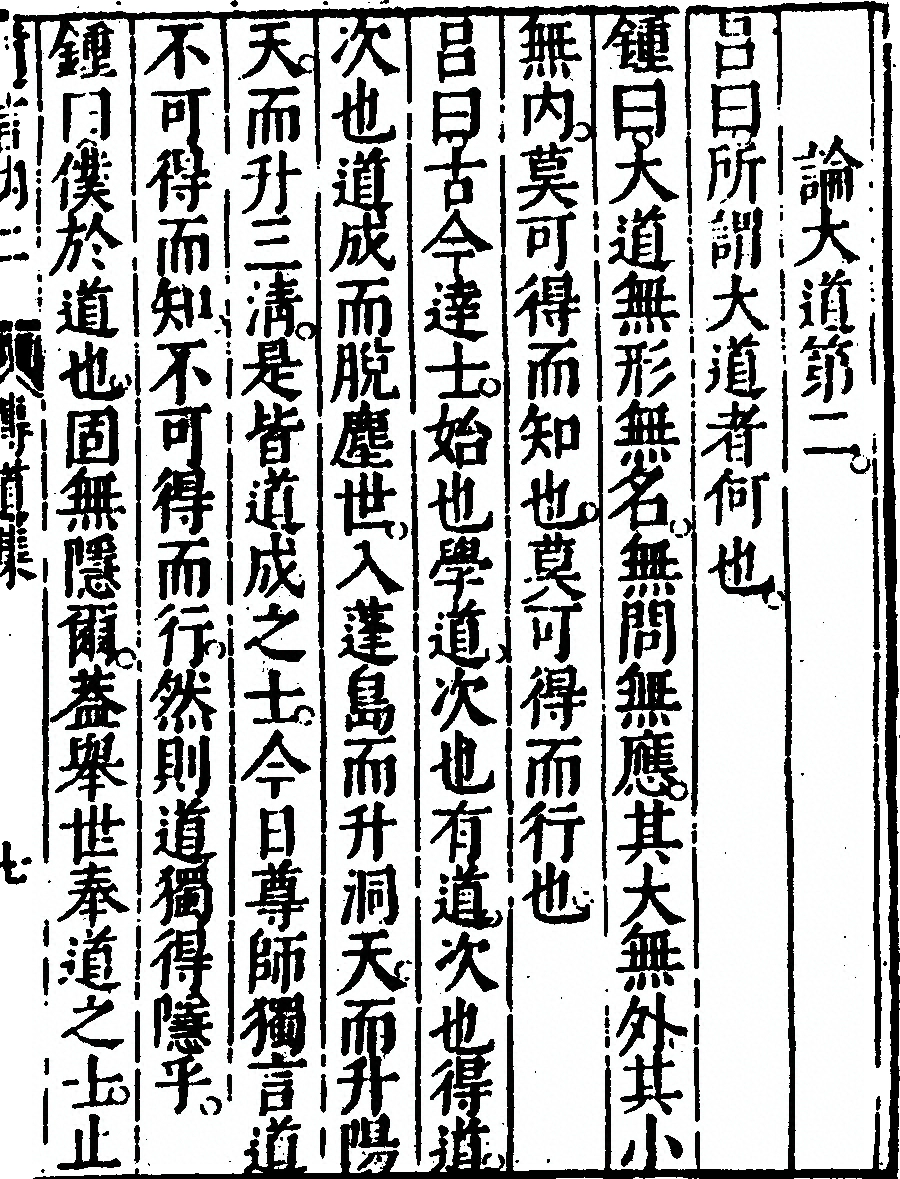 論大道第二
呂曰所謂大道者何也
鍾曰大道無形無名無問無應其大無外其小
無內莫可得而知也莫可得而行也
呂曰古今達士始也學道次也有道次也得道
次也道成而脫塵世入蓬島而升洞天而升陽
天而升三清是皆道成之士今日尊師獨言道
不可得而知不可得而行然則道獨得隱乎
鍾曰僕於道也固無隱爾蓋舉世奉道之士止
傳道集
七